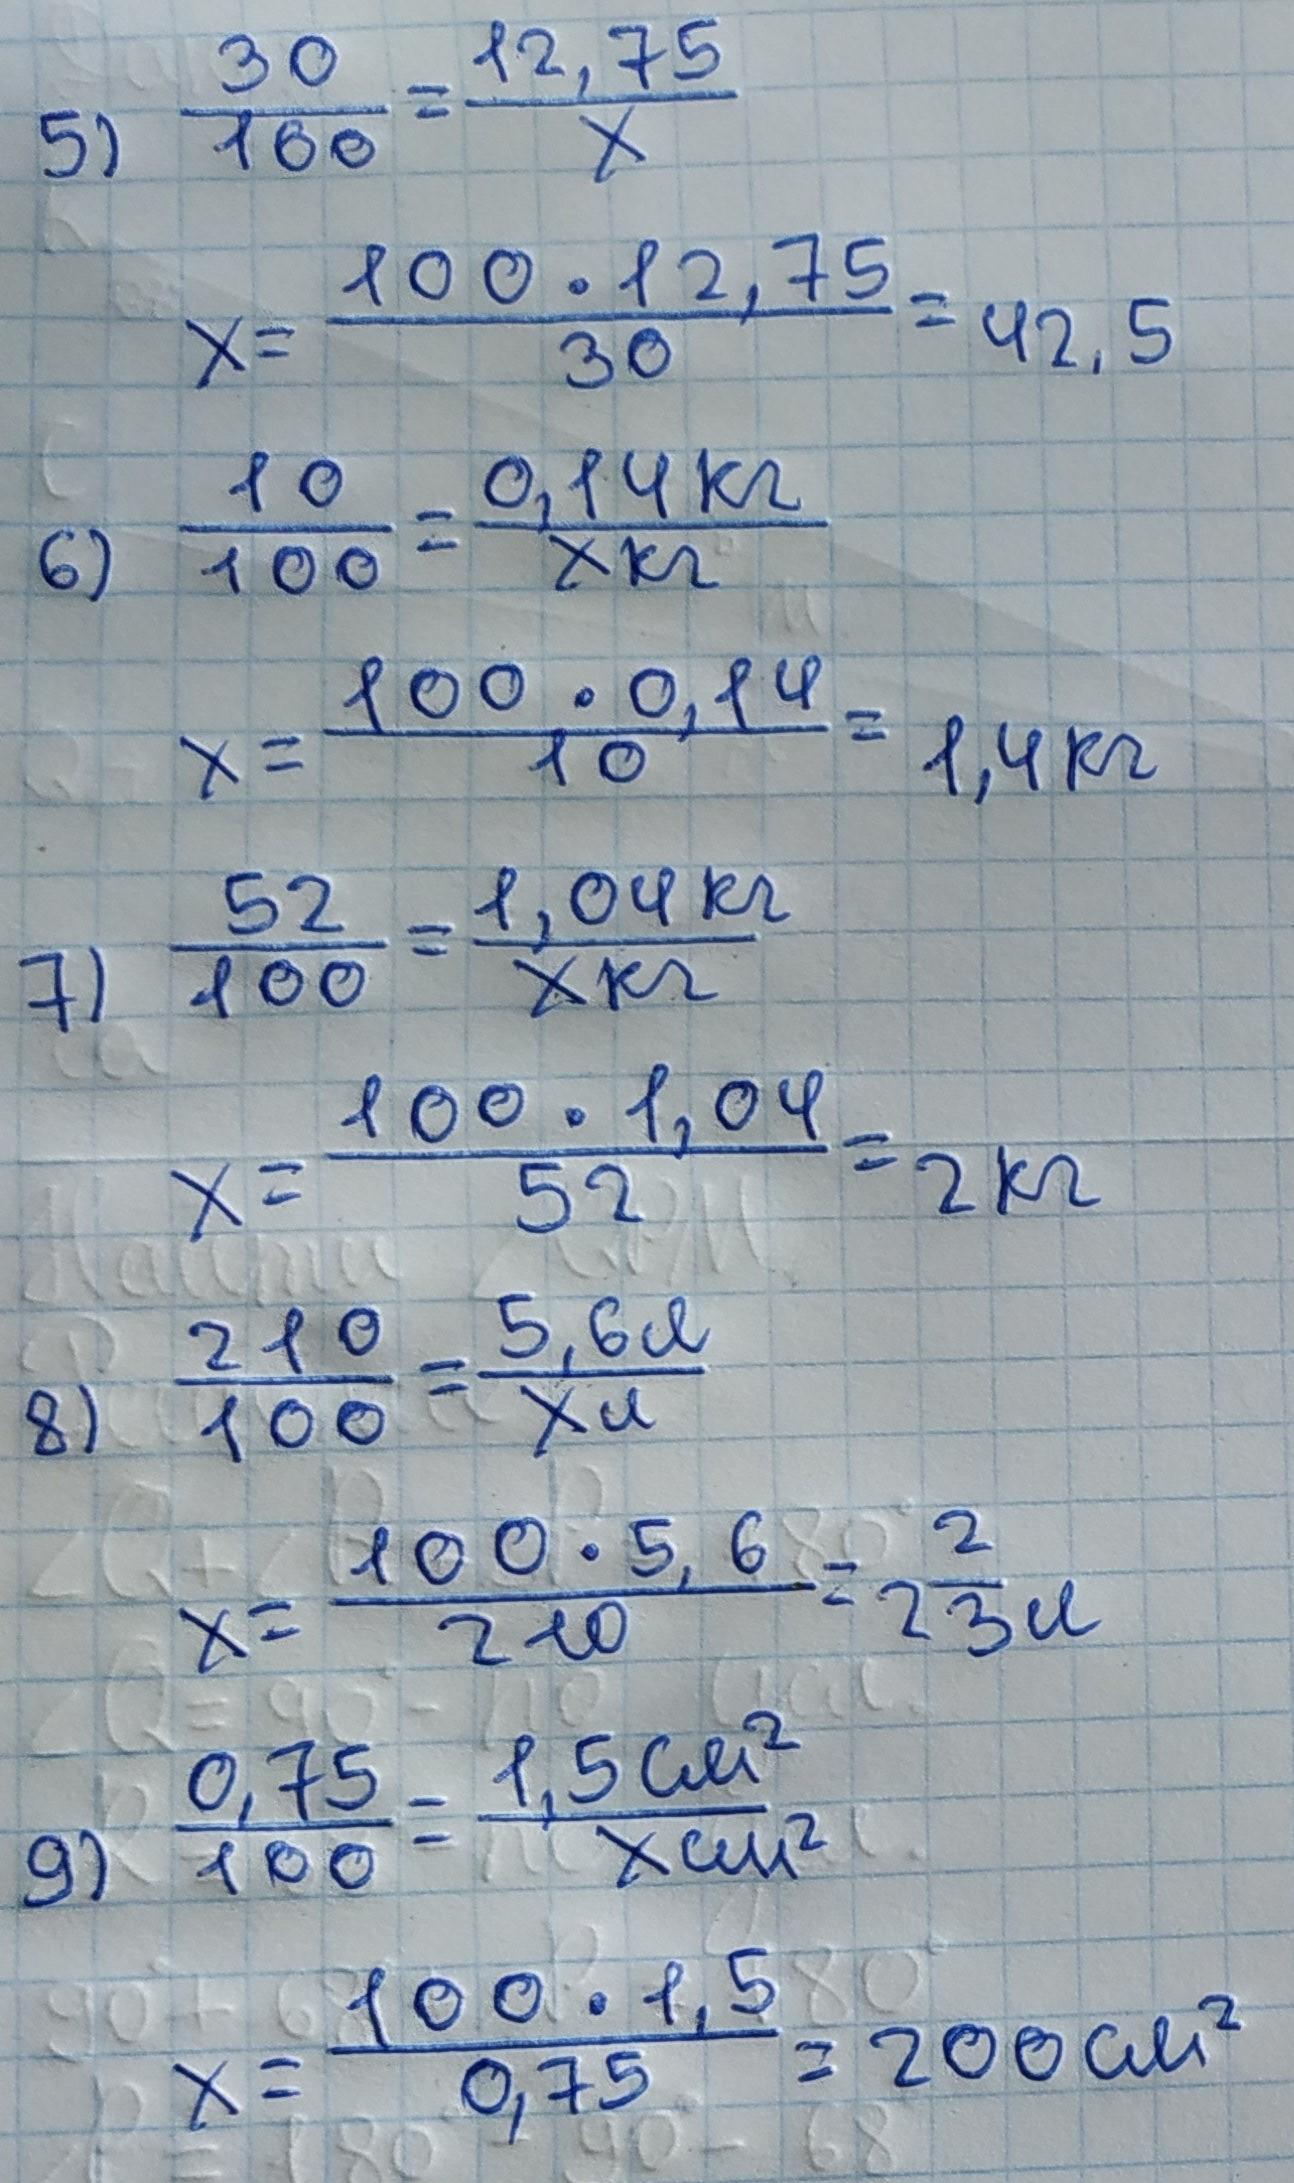 5) 30/100 = 12,75/x
x = 100 · 12,75/30 = 42,5
6) 10/100 = 0,14 кг/x кг
x = 100 · 0,14/10 = 1,4 кг
7) 52/100 = 1,04 кг/x кг
x = 100 · 1,04/52 = 2 кг
8) 210/100 = 5,6 л/x л
x = 100 · 5,6/210 = 2 2/3 л
9) 0,75/100 = 1,5 см²/x см²
x = 100 · 1,5/0,75 = 200 см²